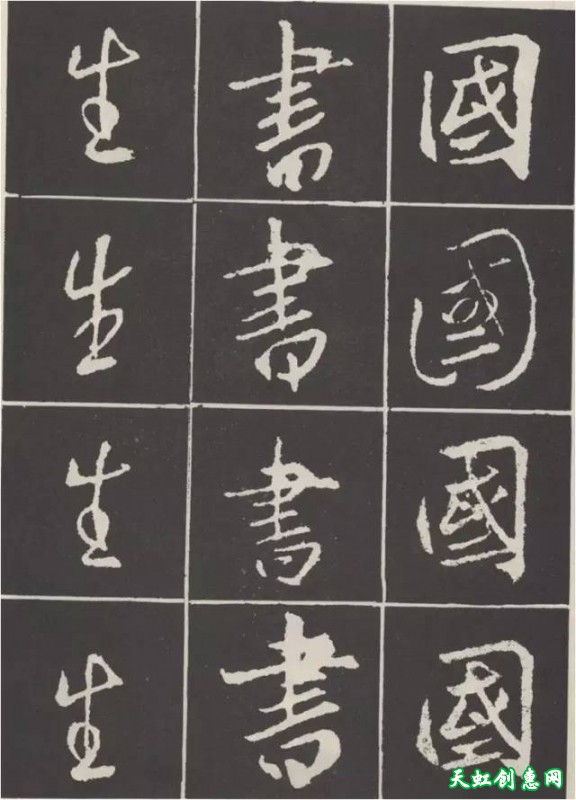 國國國國
書書書書
生生生生
天虹创惠网